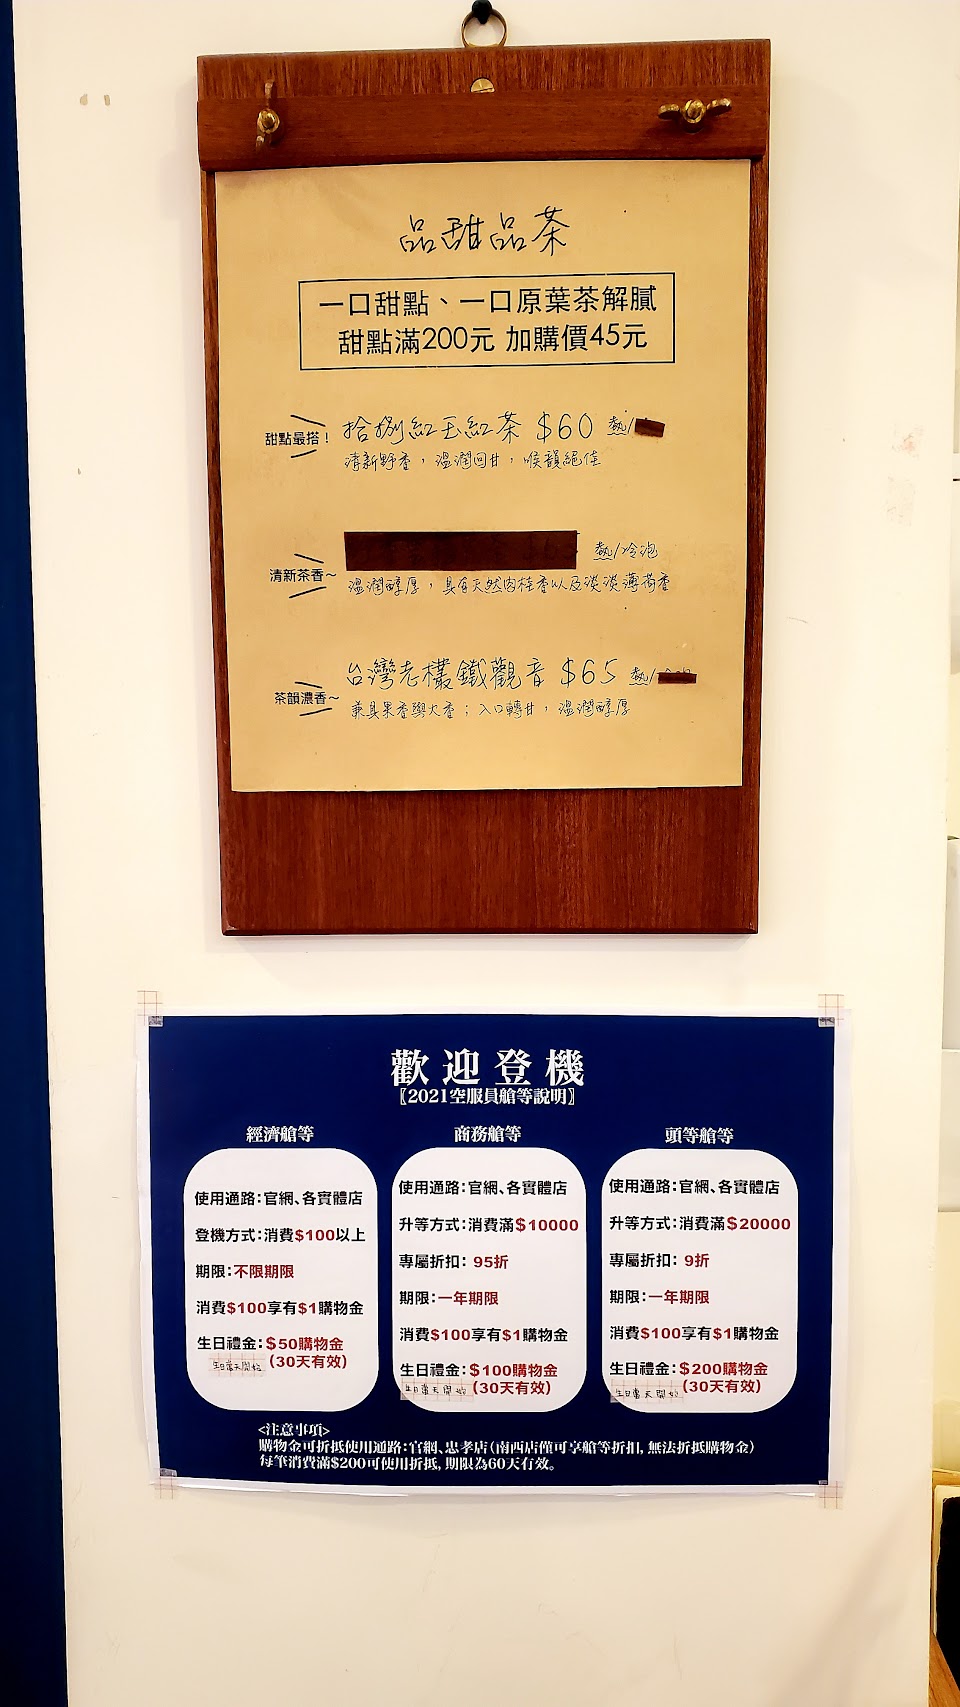 品甜品茶
一口甜點、一口原葉茶解膩
甜點滿200元 加購價45元
甜點最搭！
拾捌紅玉紅茶 $60 熱/
清新野香，溫潤回甘，喉韻絕佳
清新茶香~
熱/冷泡
溫潤醇厚，具有天然肉桂香以及淡淡薄荷香
茶韻濃香~
台灣老欉鐵觀音 $65 熱/
兼具果香與火香；入口轉甘，溫潤醇厚
歡迎登機
〖2021空服員艙等說明〗
經濟艙等
使用通路：官網、各實體店
登機方式：消費$100以上
期限：不限期限
消費$100享有$1購物金
生日禮金：$50購物金
生日當天開始 (30天有效)
商務艙等
使用通路：官網、各實體店
升等方式：消費滿$10000
專屬折扣： 95折
期限：一年期限
消費$100享有$1購物金
生日禮金：$100購物金
生日當天開始 (30天有效)
頭等艙等
使用通路：官網、各實體店
升等方式：消費滿$20000
專屬折扣： 9折
期限：一年期限
消費$100享有$1購物金
生日禮金：$200購物金
生日當天開始 (30天有效)
<注意事項>
購物金可折抵使用通路：官網、忠孝店（南西店僅可享艙等折扣，無法折抵購物金）
每筆消費滿$200可使用折抵，期限為60天有效。